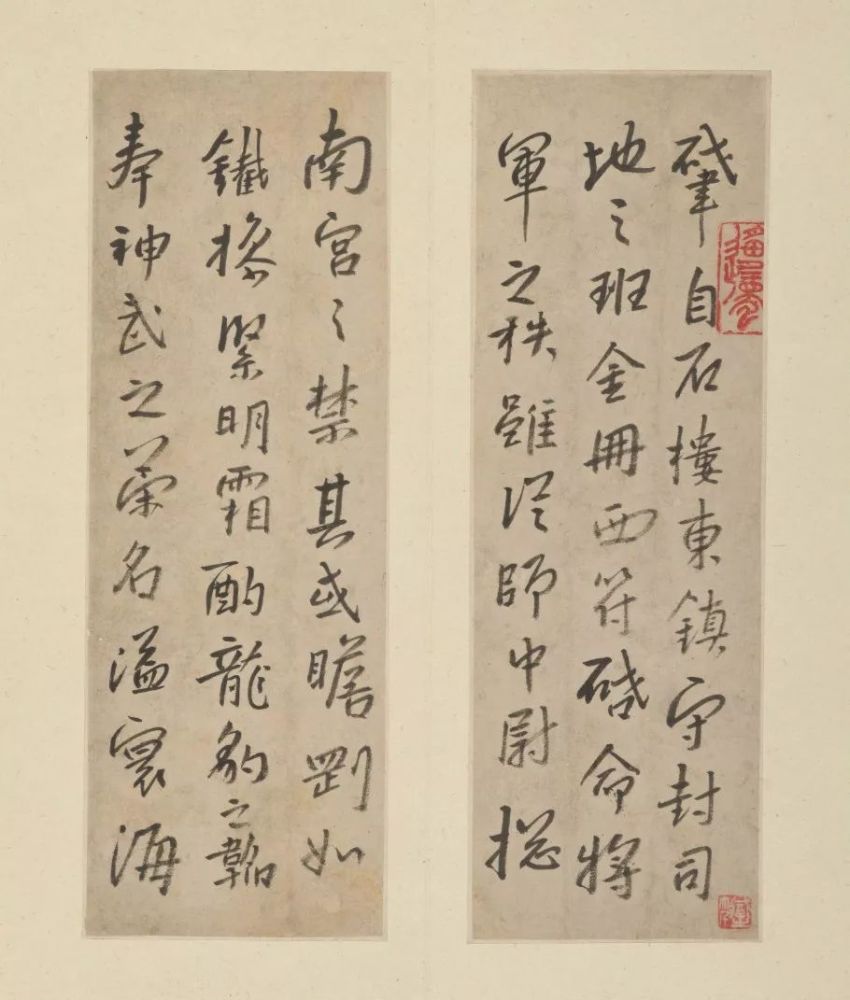 肇自石樓東鎮守封司
地之班金冊西符啓命將
軍之秩雖從師中尉摠
南宮之禁其或瞻剛如
鐵操緊明霜酌龍豹之韜
奉神武之榮名溢寰海